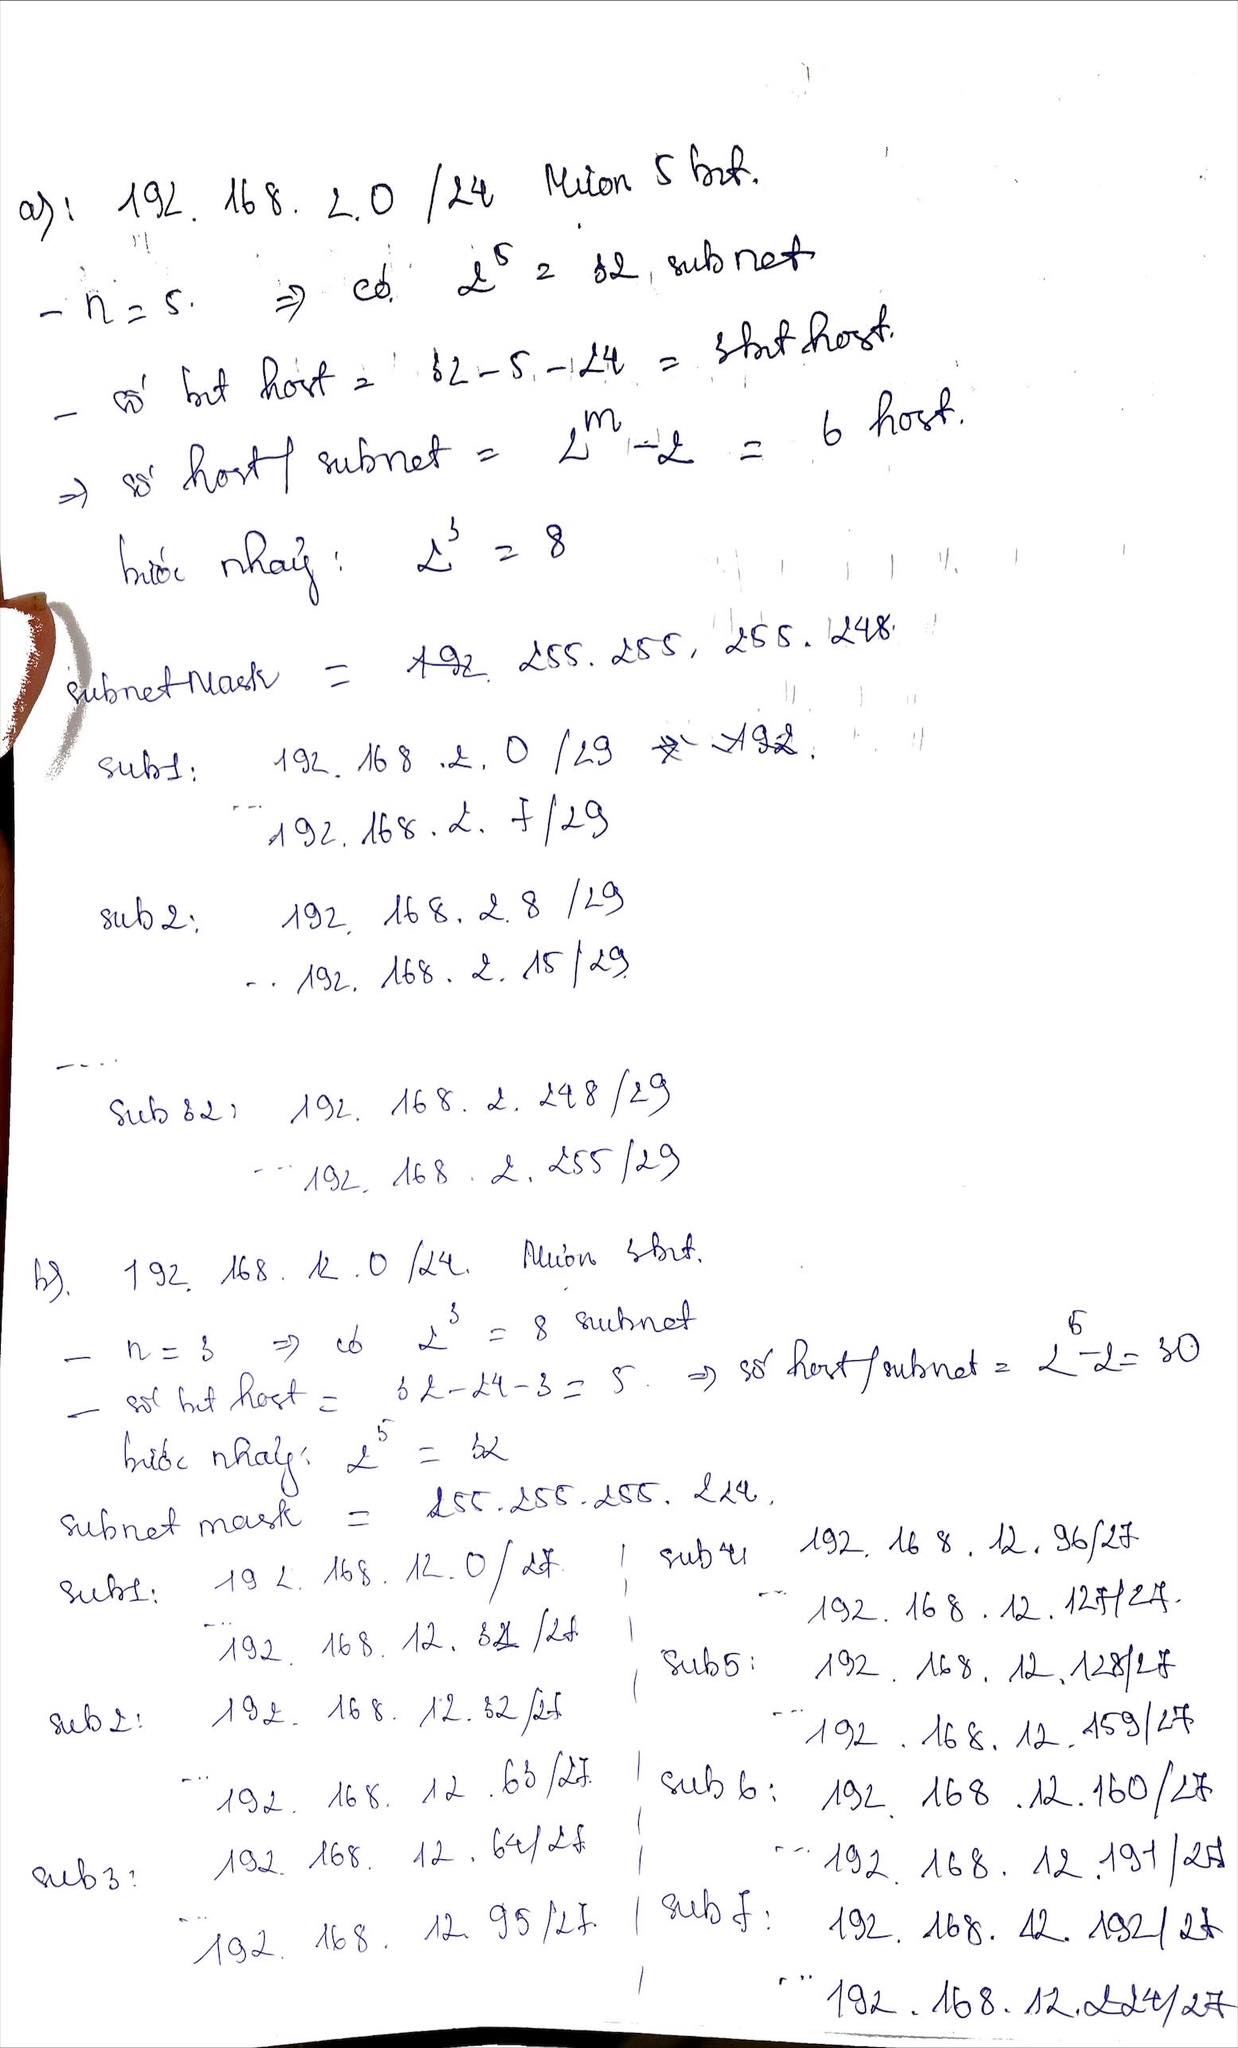 a): 192. 168. 2.0 /24 Mượn 5 bit.
- n = 5. => có 2^5 = 32 subnet
- số bit host = 32 - 5 - 24 = 3 bit host.
=> số host / subnet = 2^m - 2 = 6 host.
bước nhảy: 2^3 = 8
Subnet Mask = 192. 255. 255. 255. 248.
sub1: 192. 168 .2. 0 /29 192.
... 192. 168. 2. 7/29
sub 2: 192. 168. 2. 8 /29
.. 192. 168. 2. 15/29
....
Sub 32: 192. 168. 2. 248/29
... 192. 168. 2. 255/29
b). 192. 168. 12.0 /24. Mượn 3 bit.
- n = 3 => có 2^3 = 8 subnet
- số bit host = 32-24-3 = 5. => số host/subnet = 2^5-2 = 30
bước nhảy: 2^5 = 32
Subnet mask = 255.255.255.224.
Sub1: 192. 168. 12.0/27
... 192. 168. 12. 31 /27
sub 2: 192. 168. 12. 32/27
... 192. 168. 12 .63/27
sub 3: 192. 168. 12. 64/27
... 192. 168. 12. 95/27
sub 4: 192. 168. 12. 96/27
... 192. 168. 12. 127/27.
Sub5: 192. 168. 12. 128/27
... 192. 168. 12. 159/27
Sub 6: 192. 168 .12. 160/27
... 192. 168. 12.191/27
Sub 7: 192. 168. 12. 192/27
... 192. 168. 12.224/27